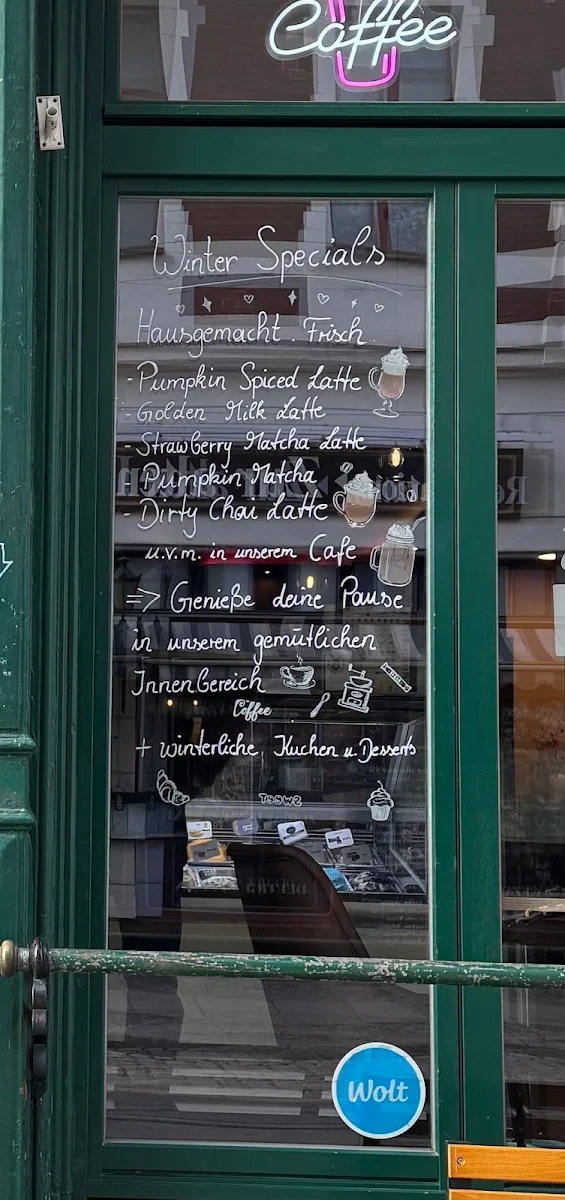 Coffee
Winter Specials
Hausgemacht . Frisch .
- Pumpkin Spiced Latte
- Golden Milk Latte
- Strawberry Matcha Latte
- Pumpkin Matcha
- Dirty Chai Latte
u.v.m. in unserem Cafe
=> Genieße deine Pause
in unserem gemütlichen
Innenbereich
Coffee
+ winterliche Kuchen u. Desserts
SWEET
Wolt